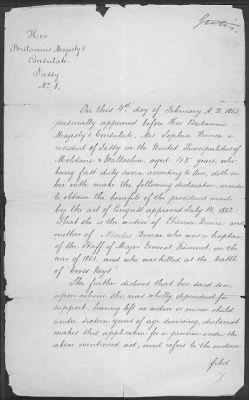 Her
Britannic Majesty's
Consulate.
Jassy
No. 1.
On this 4th day of February A.D. 1863
personally appeared before Her Britannic
Majesty's Consulate, Mrs Sophia
resident of Jassy in the United Principalities of
Moldavia & Wallachia, aged 45 years, who
being first duly sworn according to law, doth on
her oath make the following declaration in order
to obtain the benefit of the provisions made
by the act of Congress approved July 14. 1862.
That she is the widow of and
mother of Nicolas who was a Captain
of the Staff of Major General Fremont, in the
war of 1861, and who was killed at the Battle
of "Cross Keys"
She further declares that her said son,
upon whom she was wholly dependent for
support, having left no widow or minor child
under sixteen years of age surviving, declarant
makes this application for a pension under the
above mentioned act, and refers to the evidence
filed